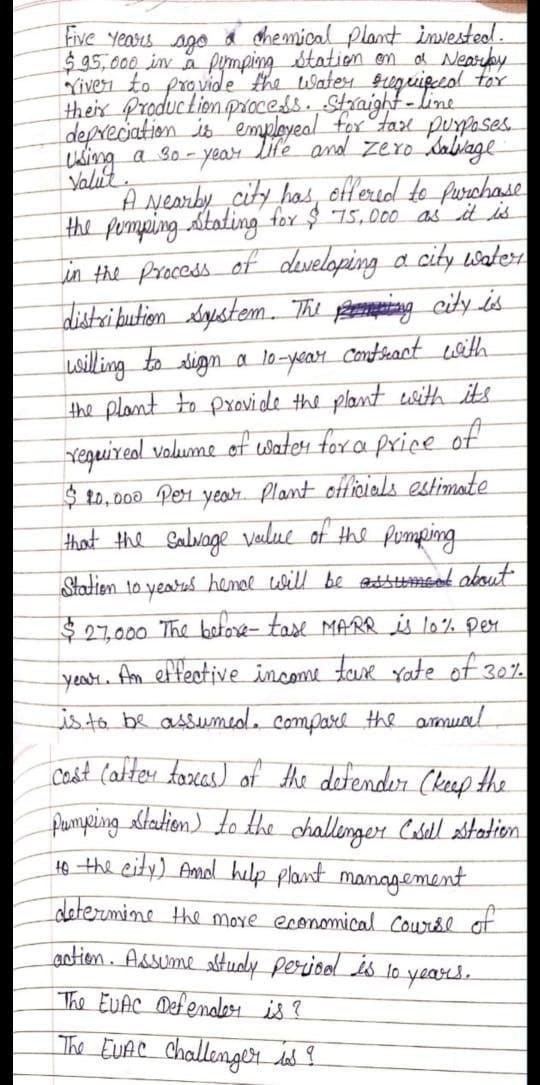 Five Years ago a chemical Plant invested.
$95,000 in a Pymping station on a Nearby
river to provide the water required for
their production process. Straight-Line
depreciation is employeed for tax purposes
using a 30-year life and zero Salvage
Valut.
A Nearby city has offered to Purchase
the Pumping stating for $ 75,000 as it is
in the Process of developing a city water
distribution system. The city is
willing to sign a 10-year contract with
the plant to provide the plant with its
required volume of water for a price of
$ 10,000 Per year. Plant officials estimate
that the Salvage value of the Pumping
Station 10 years hence will be about
$ 27,000 The before-tax MARR is 10% Per
year. An effective income tax rate of 30%
is to be assumed. compare the annual
cost (after taxes) of the defender (keep the
Pumping station) to the challenger (sell station
to the city) And help plant management
determine the more economical course of
action. Assume study period is 10 years.
The EUAC Defender is?
The EUAC Challenger is?